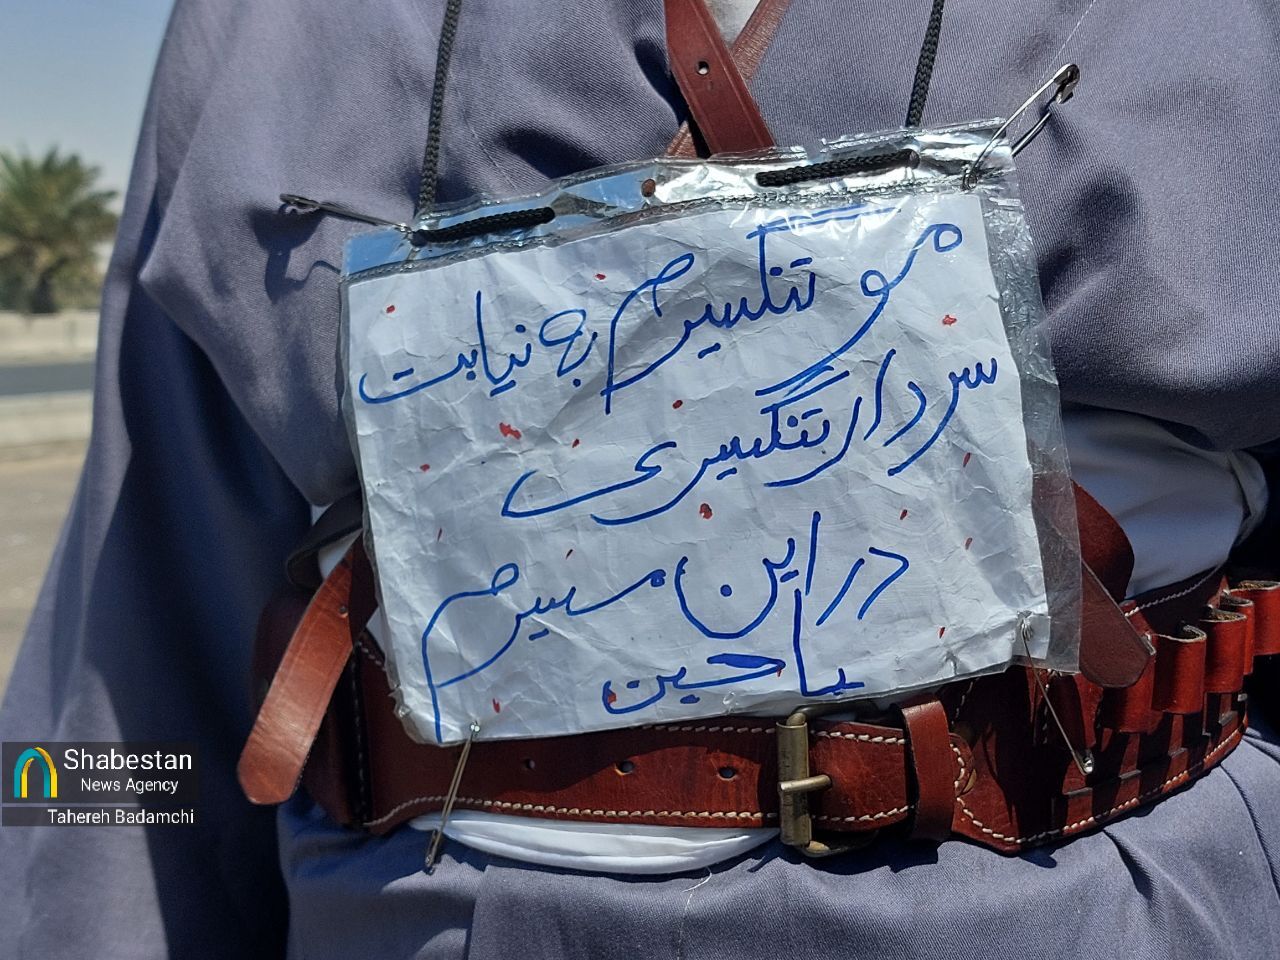 مو تنگسیرم به نیابت
سردار تنگسیری
در این مسیرم
یا حسین
Shabestan
News Agency
Tahereh Badamchi